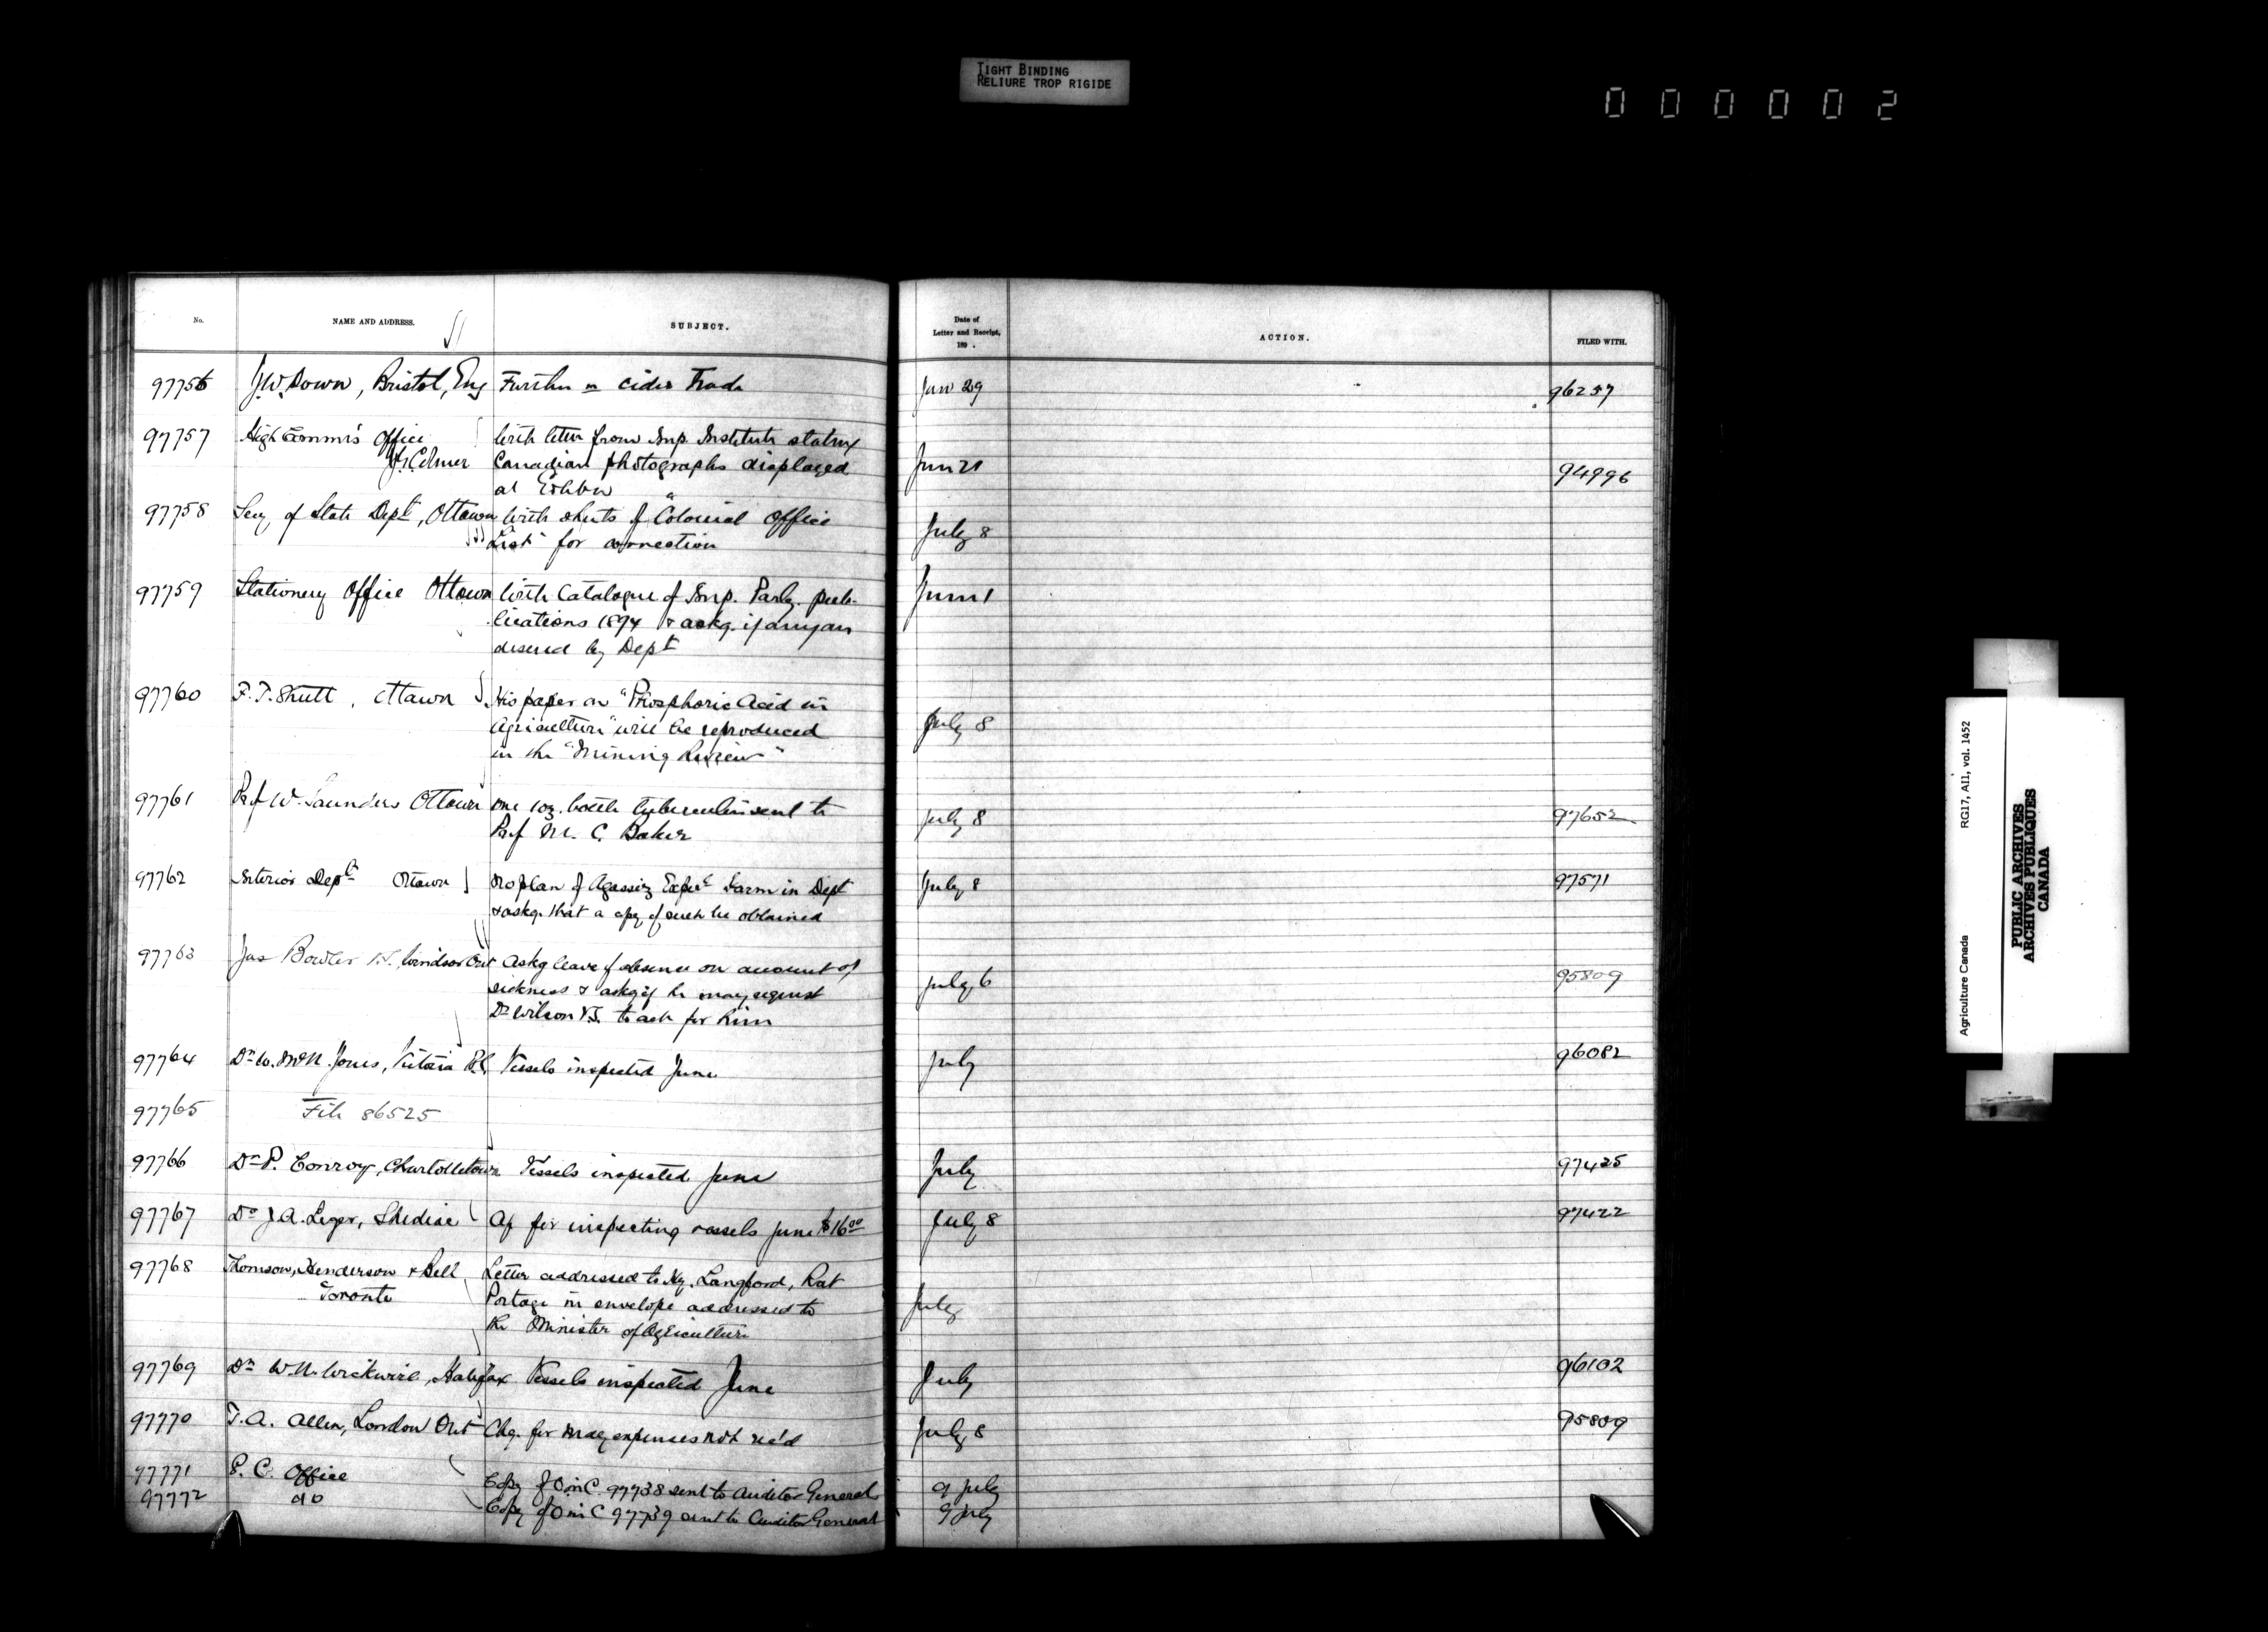 TIGHT BINDING
RELIURE TROP RIGIDE
000002
No. NAME AND ADDRESS. SUBJECT. Date of Letter and Receipt, 189 . ACTION. FILED WITH.
97756 J.W. Down, Bristol, Eng Further re cider Trade Jun 29 96257
97757 High Commr's Office With letter from Imp. Institute stating
J.G. Colmer Canadian photographs displayed Jun 21 94996
at Exhbn
97758 Secy of State Dept, Ottawa With shts of "Colonial Office July 8
List" for correction
97759 Stationery Office Ottawa With Catalogue of Imp. Parly. pub- June 1
lications 1894 & askg. if any are
desired by Dept
97760 F. T. Shutt, Ottawa His paper on "Phosphoric Acid in
Agriculture" will be reproduced July 8
in the "Mining Review"
97761 Prof W. Saunders Ottawa One 1 oz. bottle tuberculin sent to July 8 97652
Prof M. C. Baker
97762 Interior Dept Ottawa No plan of Agassiz Exper Farm in Dept July 8 97571
& askg. that a copy of such be obtained
97763 Jas Bowler V.S. Windsor Ont Askg leave of absence on account of
sickness & askg if he may request July 6 95809
Dr Wilson V.S. to act for him
97764 Dr W. McN. Jones, Victoria B.C. Vessels inspected June July 96082
97765 File 86525
97766 Dr P. Conroy, Charlottetown Vessels inspected June July 97425
97767 Dr J. A. Leger, Shediac A/c for inspecting vessels June $16.00 July 8 97422
97768 Thomson, Henderson & Bell Letter addressed to Hy. Langford, Rat
Toronto Portage in envelope addressed to July
the Minister of Agriculture
97769 Dr W. N. Wickwire, Halifax Vessels inspected June July 96102
97770 T. A. Allen, London Ont Chq. for May expenses not rec'd July 8 95809
97771 P. C. Office Copy of O in C. 97738 sent to Auditor General 9 July
97772 do Copy of O in C 97739 sent to Auditor General 9 July
Agriculture Canada RG17, AI1, vol. 1452
PUBLIC ARCHIVES
ARCHIVES PUBLIQUES
CANADA